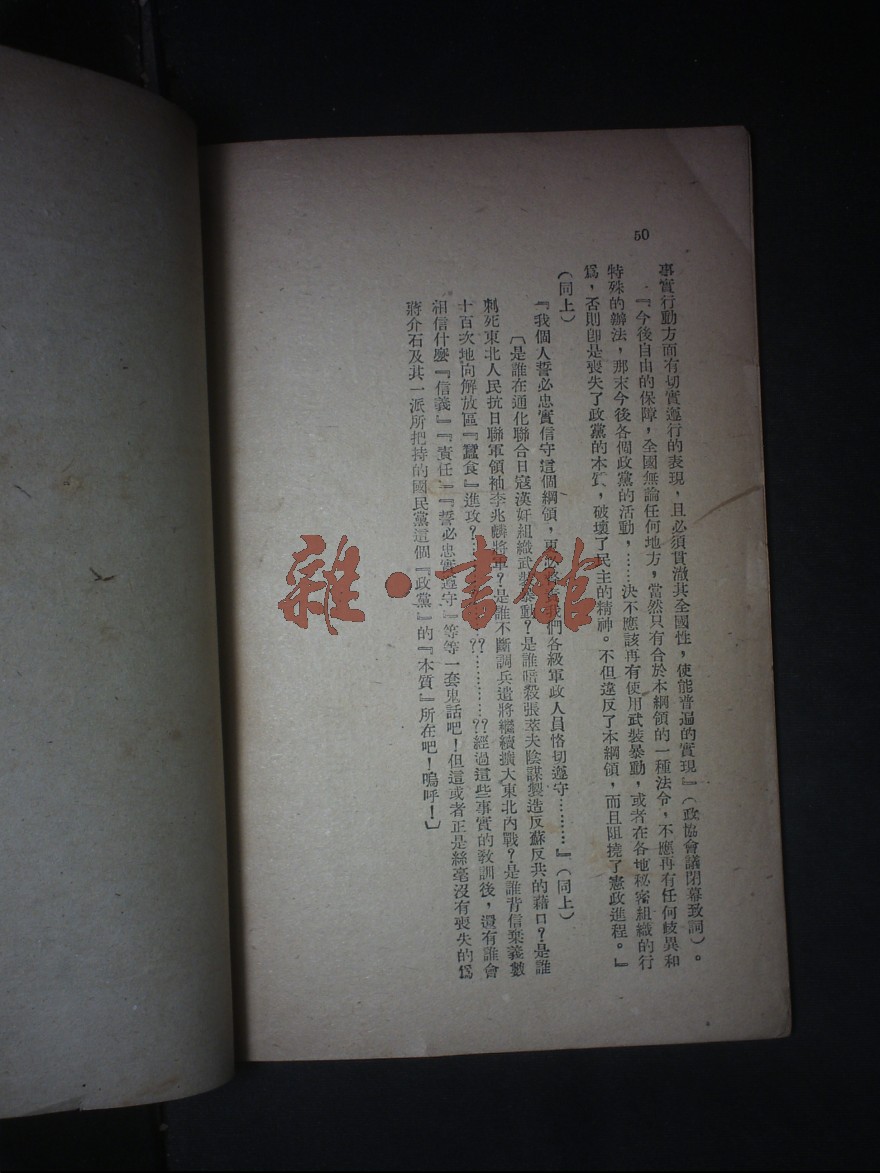 50
事實行動方面有切實遵行的表現，且必須貫澈其全國性，使能普遍的實現』（政協會議閉幕致詞）。
『今後自由的保障，全國無論任何地方，當然只有合於本綱領的一種法令，不應再有任何歧異和
特殊的辦法，那末今後各個政黨的活動，……決不應該再有使用武裝暴動，或者在各地秘密組織的行
爲，否則卽是喪失了政黨的本質，破壞了民主的精神。不但違反了本綱領，而且阻撓了憲政進程。』
（同上）
『我個人誓必忠實信守這個綱領，更必我們各級軍政人員恪切遵守………』（同上）
〔是誰在通化聯合日寇漢奸組織武裝暴動？是誰暗殺張莘夫陰謀製造反蘇反共的藉口？是誰
刺死東北人民抗日聯軍領袖李兆麟將軍？是誰不斷調兵遣將繼續擴大東北內戰？是誰背信棄義數
十百次地向解放區『蠶食』進攻？……??…………??經過這些事實的敎訓後，還有誰會
相信什麼『信義』『責任』『誓必忠實遵守』等等一套鬼話吧！但這或者正是絲毫沒有喪失的爲
蔣介石及其一派所把持的國民黨這個『政黨』的『本質』所在吧！嗚呼！〕
雜·書館